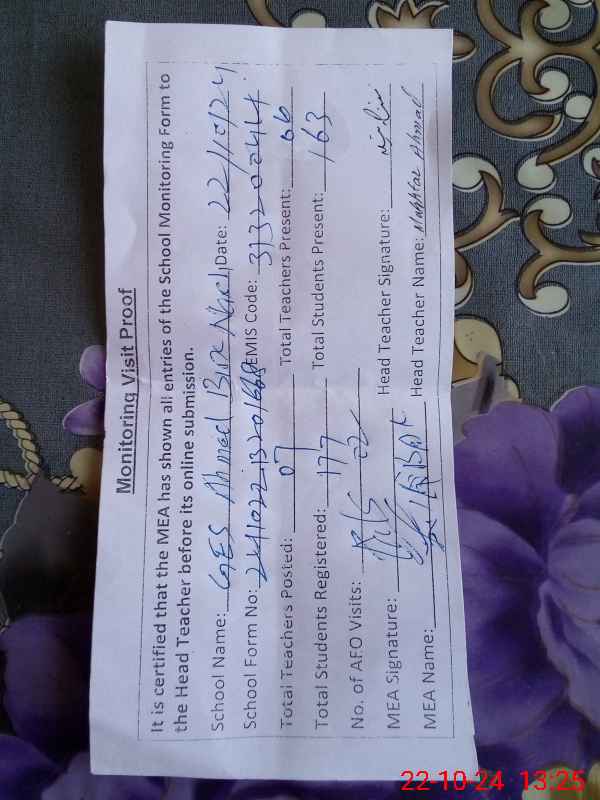 Monitoring Visit Proof
It is certified that the MEA has shown all entries of the School Monitoring Form to
the Head Teacher before its online submission.
School Name: GES Ahmad Bux Date: 22/10/24
School Form No: EMIS Code: 31320244
Total Teachers Posted: 07 Total Teachers Present: 06
Total Students Registered: 177 Total Students Present: 163
No. of AEO Visits: 02
MEA Signature: Head Teacher Signature:
MEA Name: Head Teacher Name: Mukhtar Ahmad
22-10-24 13:25